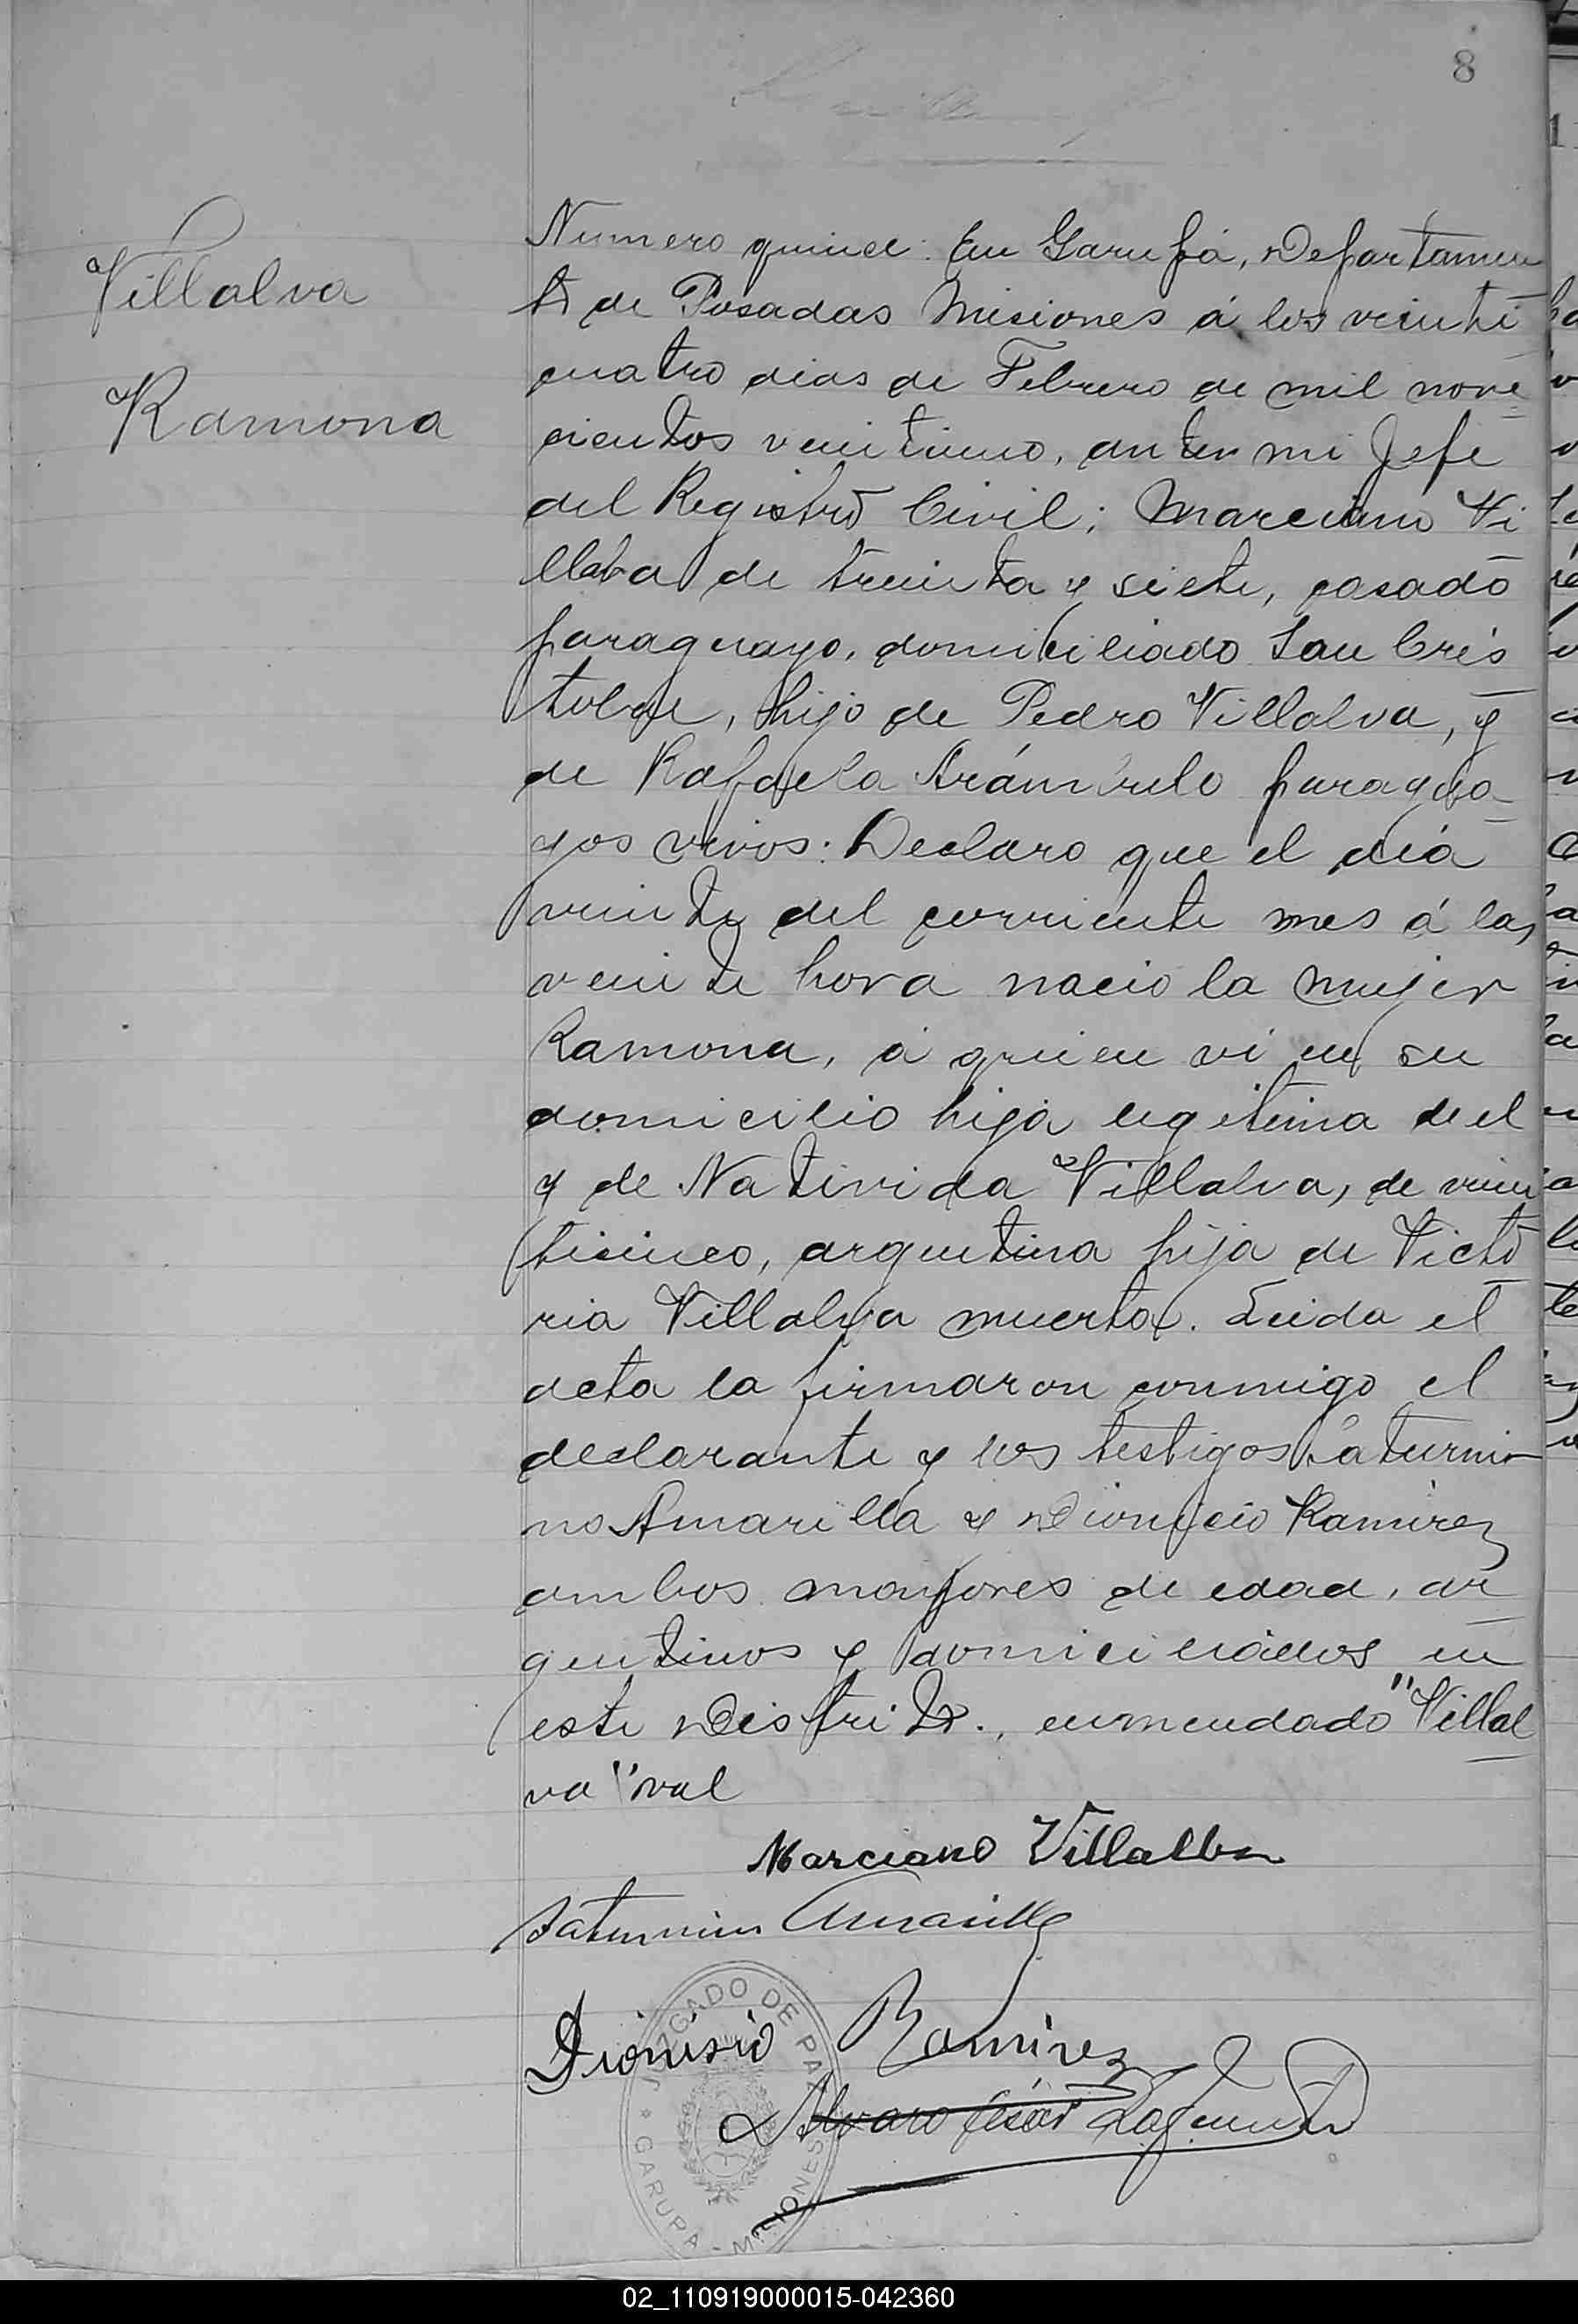 8
Villalva
Ramona
Numero quince: En Garupá, Departamen
to de Posadas Misiones á los veinti
cuatro dias de Febrero de mil nove
cientos veintiuno, ante mi Jefe
del Registro Civil; Marciano Vi
llalva de treinta y siete, casado
paraguayo, domiciliado San Cris
tobal, hijo de Pedro Villalva, y
de Rafaela Arámbulo paragua
yos vivos: Declaro que el dia
veinte del corriente mes á las
veinte hora nacio la mujer
Ramona, á quien vi en su
domicilio hija legitima de el
y de Nativida Villalva, de vein
ticinco, argentina hija de Victo
ria Villalva muerta. Leida el
acta la firmaron conmigo el
declarante y los testigos Saturni
no Amarilla y Dionicio Ramirez
ambos mayores de edad, ar
gentinos y domiciliados en
este Distrito., enmendado "Villal
va" val
Marciano Villalba
Saturnino Amarilla
Dionisio Ramirez
Alvaro César
JUZGADO DE PAZ
GARUPA - MISIONES
02_110919000015-042360